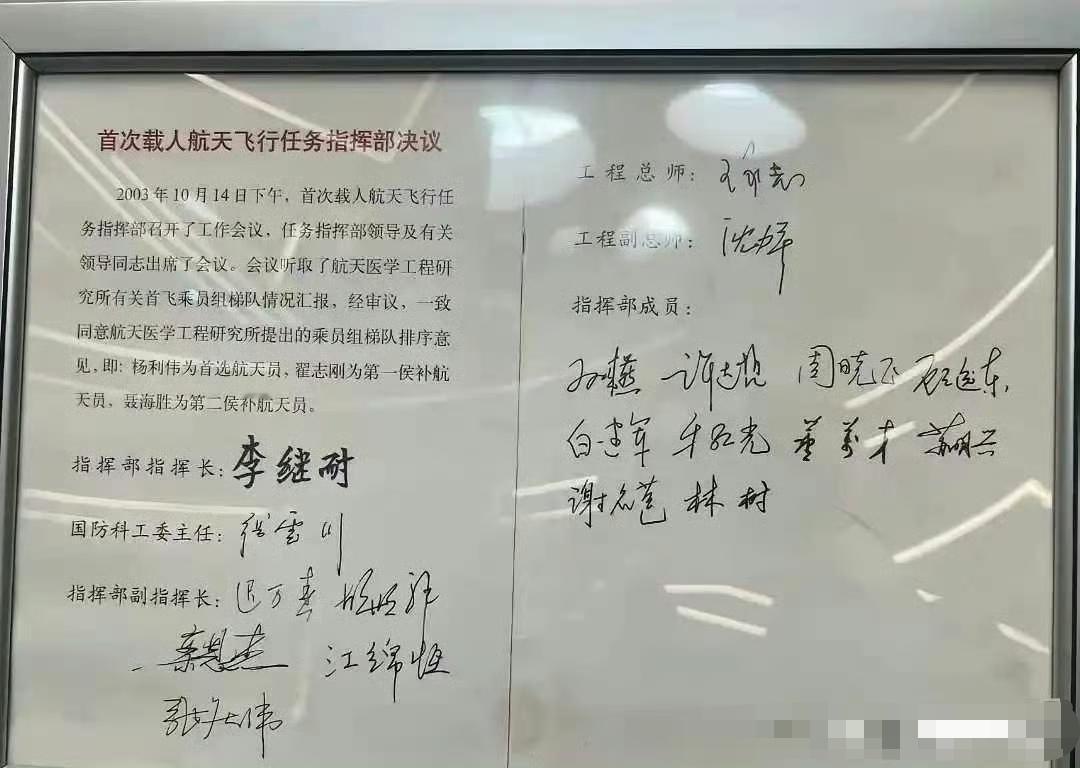 首次载人航天飞行任务指挥部决议
2003年10月14日下午，首次载人航天飞行任
务指挥部召开了工作会议，任务指挥部领导及有关
领导同志出席了会议。会议听取了航天医学工程研
究所有关首飞乘员组梯队情况汇报，经审议，一致
同意航天医学工程研究所提出的乘员组梯队排序意
见，即：杨利伟为首选航天员，翟志刚为第一侯补航
天员，聂海胜为第二侯补航天员。
指挥部指挥长：李继耐
国防科工委主任：张云川
指挥部副指挥长：迟万春 胡世祥
江绵恒
工程总师：王永志
工程副总师：沈力平
指挥部成员：
许达哲 周晓飞 顾逸东
白建军 牛红光 董万才
谢名苞 林树